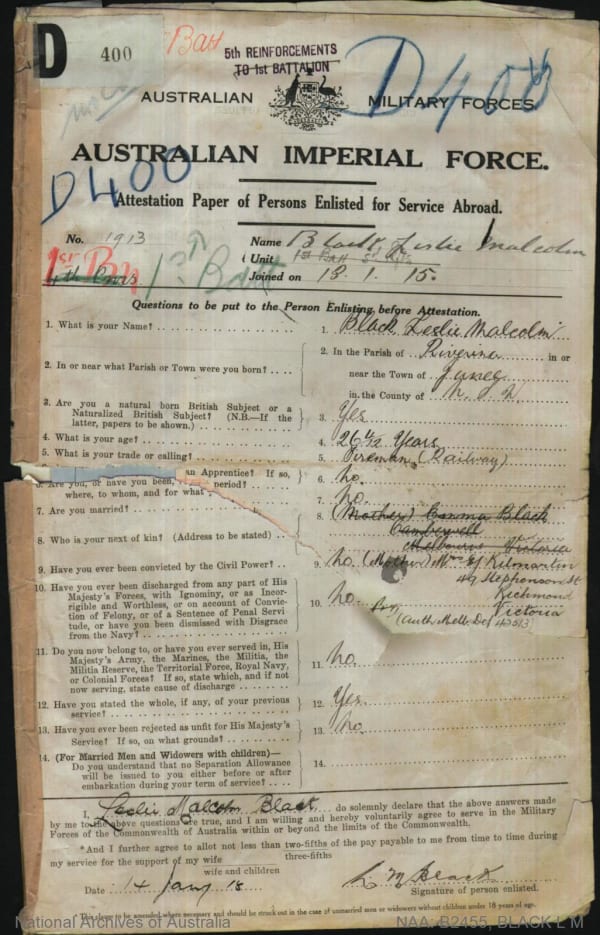 D
400
Batt
5th REINFORCEMENTS
TO 1st BATTALION
D400
AUSTRALIAN MILITARY FORCES
AUSTRALIAN IMPERIAL FORCE.
D400
Attestation Paper of Persons Enlisted for Service Abroad.
No. 1913
Name Black, Leslie Malcolm
Unit 1st Batt
1st Bn
Joined on 18.1.15.
Questions to be put to the Person Enlisting before Attestation.
1. What is your Name?
1. Black Leslie Malcolm
2. In or near what Parish or Town were you born?
2. In the Parish of Riverina in or
near the Town of Junee
in the County of N.S.W.
3. Are you a natural born British Subject or a
Naturalized British Subject? (N.B.—If the
latter, papers to be shown.)
3. Yes
4. What is your age?
4. 26 4/12 Years
5. What is your trade or calling?
5. Fireman (Railway)
an Apprentice? If so,
6. Are you, or have you been, period?
where, to whom, and for what
6. No.
7. Are you married?
7. No.
8. Who is your next of kin? (Address to be stated)
8. (Mother) Emma Black
Camberwell
Melbourne Victoria
9. Have you ever been convicted by the Civil Power?
9. No. (Mother) Mrs Kilmartin
49 Stephenson St
Richmond
Victoria
(Auth. Melb. 43513)
10. Have you ever been discharged from any part of His
Majesty's Forces, with Ignominy, or as Incor-
rigible and Worthless, or on account of Convic-
tion of Felony, or of a Sentence of Penal Servi-
tude, or have you been dismissed with Disgrace
from the Navy?
10. No.
11. Do you now belong to, or have you ever served in, His
Majesty's Army, the Marines, the Militia, the
Militia Reserve, the Territorial Force, Royal Navy,
or Colonial Forces? If so, state which, and if not
now serving, state cause of discharge
11. No.
12. Have you stated the whole, if any, of your previous
service?
12. Yes.
13. Have you ever been rejected as unfit for His Majesty's
Service? If so, on what grounds?
13. No.
14. (For Married Men and Widowers with children)—
Do you understand that no Separation Allowance
will be issued to you either before or after
embarkation during your term of service?
14.
I, Leslie Malcolm Black do solemnly declare that the above answers made
by me to the above questions are true, and I am willing and hereby voluntarily agree to serve in the Military
Forces of the Commonwealth of Australia within or beyond the limits of the Commonwealth.
*And I further agree to allot not less than two-fifths of the pay payable to me from time to time during
three-fifths
my service for the support of my wife
wife and children
Date 14 Jany 15
L M Black
Signature of person enlisted.
*This clause to be amended where necessary and should be struck out in the case of unmarried men or widowers without children under 18 years of age.
National Archives of Australia
NAA: B2455, BLACK L M